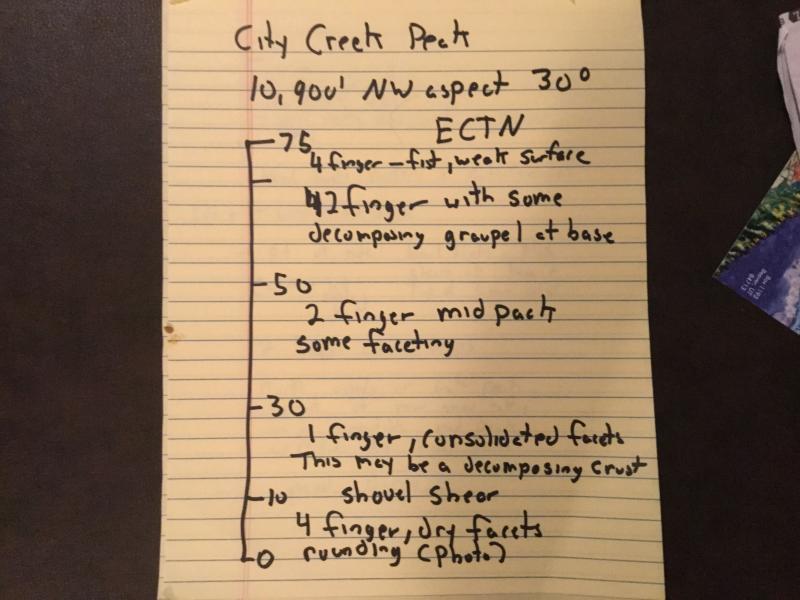 City Creek Peak
10,900' NW aspect 30°
ECTN
75
4 finger - fist, weak surface
2 finger with some
decomposing graupel at base
50
2 finger mid pack
some faceting
30
1 finger, consolidated facets
This may be a decomposing crust
10 shovel shear
4 finger, dry facets
0 rounding (photo)